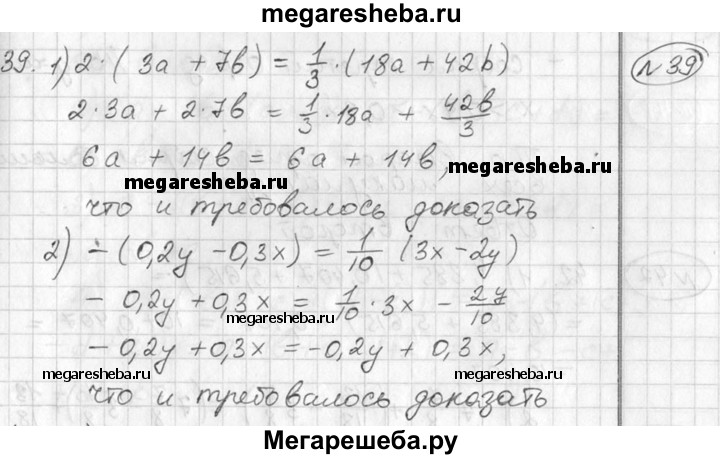 megaresheba.ru
39. 1) 2·(3a + 7b) = 1/3·(18a + 42b)
№39
2·3a + 2·7b = 1/3·18a + 42b/3
6a + 14b = 6a + 14b,
megaresheba.ru
megaresheba.ru
что и требовалось доказать
2) -(0,2y - 0,3x) = 1/10 (3x - 2y)
- 0,2y + 0,3x = 1/10·3x - 2y/10
megaresheba.ru
megaresheba.ru
- 0,2y + 0,3x = -0,2y + 0,3x,
megaresheba.ru
megaresheba.ru
что и требовалось доказать
Мегарешеба.ру